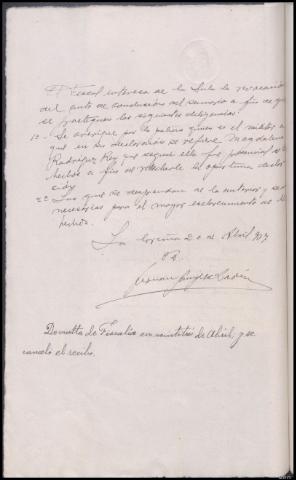 El Fiscal interesa de la Sala la revocación
del auto de conclusión del sumario a fin de que
se practiquen las siguientes diligencias:
1ª Se averigüe por la policia quien es el militar a
que en su declaración se refiere Magdalena
Rodriguez Rey que segun ella fue presencial de los
hechos a fin de recibirle la oportuna declara
ción
2ª Las que se desprendan de la anterior y sean
necesarias para el mayor esclarecimiento de los
hechos.
La Coruña 20 de Abril 937
Devuelta de Fiscalia en veintitrés de Abril, y se
canceló el recibo.